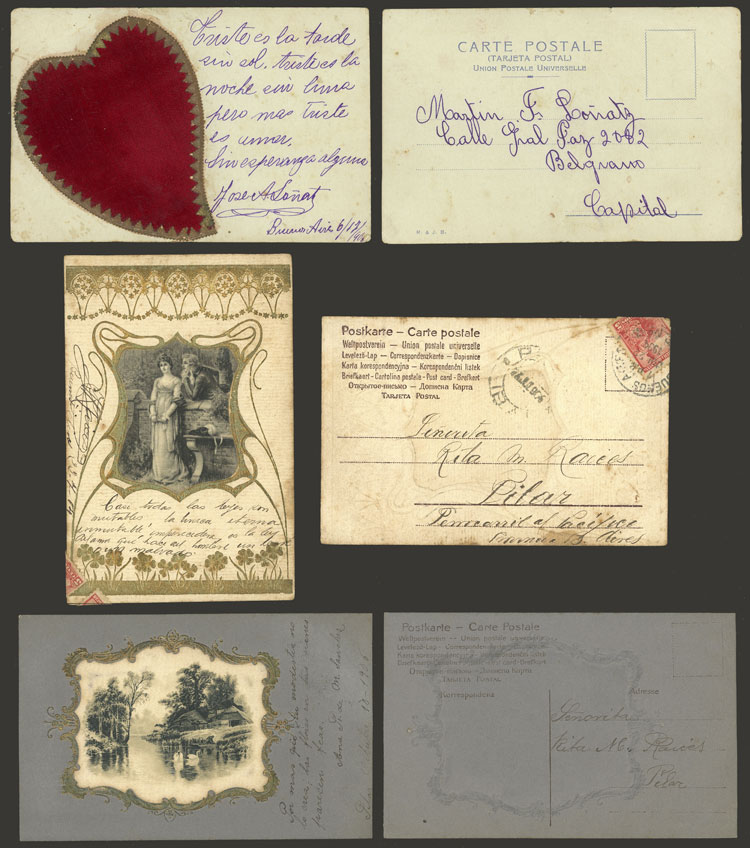 Triste es la tarde
sin sol, triste es la
noche sin luna
pero mas triste
es amar,
Sin esperanza alguna
Jose A Loñat
Buenos Aires 6/12/
CARTE POSTALE
(TARJETA POSTAL)
UNION POSTALE UNIVERSELLE
Martin F. Loñatz
Calle Gral Paz 2002
Belgrano
Capital
Casi todas las leyes son
mutables la unica eterna
inmutable imperecedera es la ley
que hace del hombre un
malvado
Postkarte – Carte postale
Weltpostverein – Union postale universelle
Levelező-Lap – Correspondenzkarte – Dopisnice
Karta korespondencyjna – Korespondenční lístek
Briefkaart – Cartolina postale – Post card – Brefkort
Открытое письмо – Дописна Карта
TARJETA POSTAL
BUENOS AIRES
Senorita
Rita M. Raices
Pilar
Ferrocarril al Pacifico
Buenos Aires
Por mas que modesta no
lo sea, las flores sus manos
parecen
Postkarte – Carte Postale
Weltpostverein – Union postale universelle
Levelező-Lap – Correspondenzkarte – Dopisnice
Karta korespondencyjna – Korespondenční lístek
Briefkaart – Cartolina postale – Post card – Brefkort
Открытое письмо – Дописна Карта
TARJETA POSTAL
Correspondenz
Adresse
Señorita
Rita M. Raices
Pilar